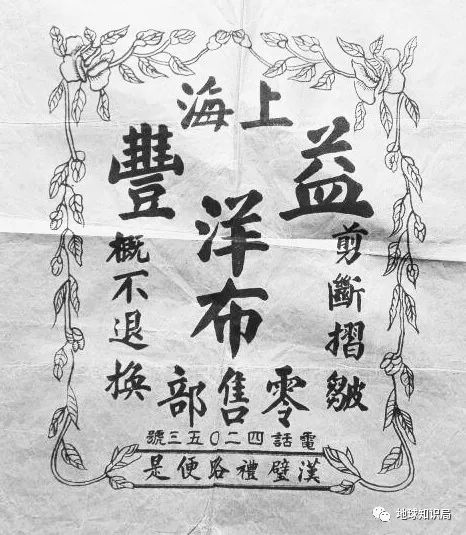 上海
益豐
洋布
零售部
剪斷摺皺
概不退換
電話四二〇五三號
漢璧禮路便是
地球知识局